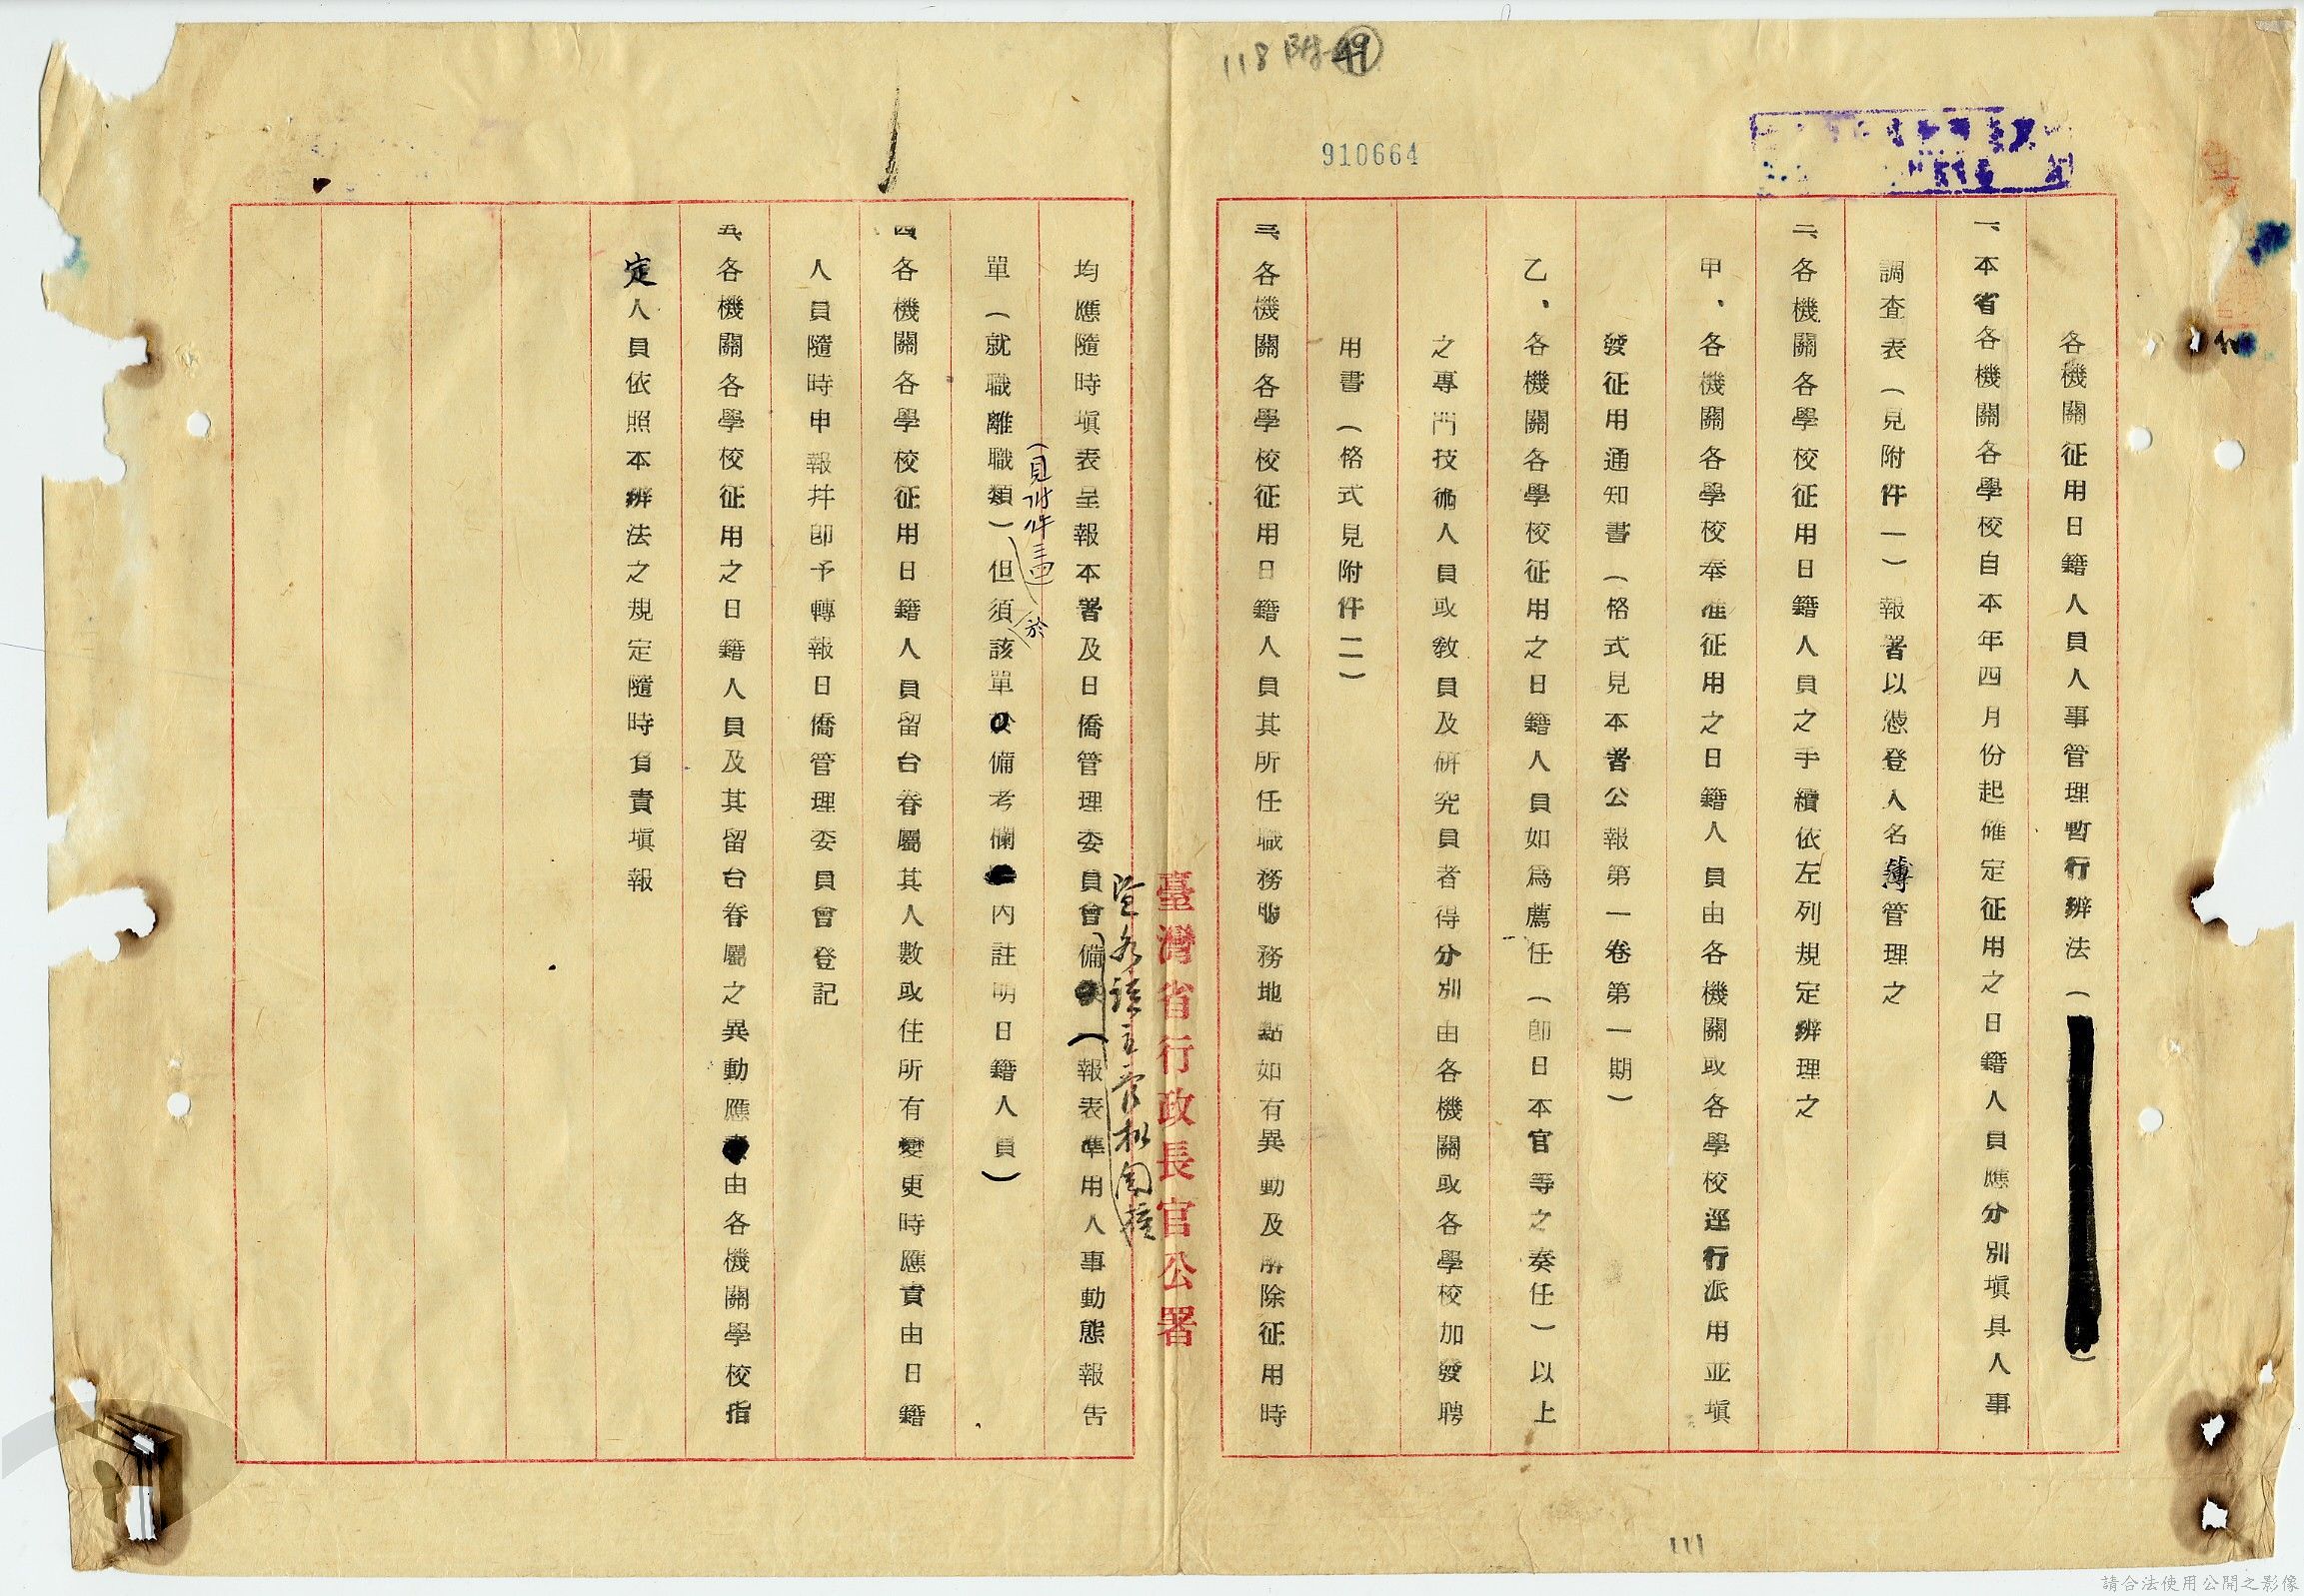 118 附 49
910664
各機關征用日籍人員人事管理暫行辦法（　）
一、本省各機關各學校自本年四月份起確定征用之日籍人員應分別塡具人事
調査表（見附件一）報署以憑登人名簿管理之
二、各機關各學校征用日籍人員之手續依左列規定辦理之
甲、各機關各學校奉准征用之日籍人員由各機關或各學校逕行派用並塡
發征用通知書（格式見本署公報第一卷第一期）
乙、各機關各學校征用之日籍人員如爲薦任（卽日本官等之奏任）以上
之專門技術人員或敎員及硏究員者得分別由各機關或各學校加發聘
用書（格式見附件二）
三、各機關各學校征用日籍人員其所任職務服務地點如有異動及解除征用時
臺灣省行政長官公署
均應隨時塡表呈報本署及日僑管理委員會備（報表準用人事動態報告
（見附件三四）於
單（就職離職類）但須該單備考欄內註明日籍人員）
四、各機關各學校征用日籍人員留台眷屬其人數或住所有變更時應責由日籍
人員隨時申報幷卽予轉報日僑管理委員會登記
五、各機關各學校征用之日籍人員及其留台眷屬之異動應由各機關學校指
定人員依照本辦法之規定隨時負責塡報
111
請合法使用公開之影像